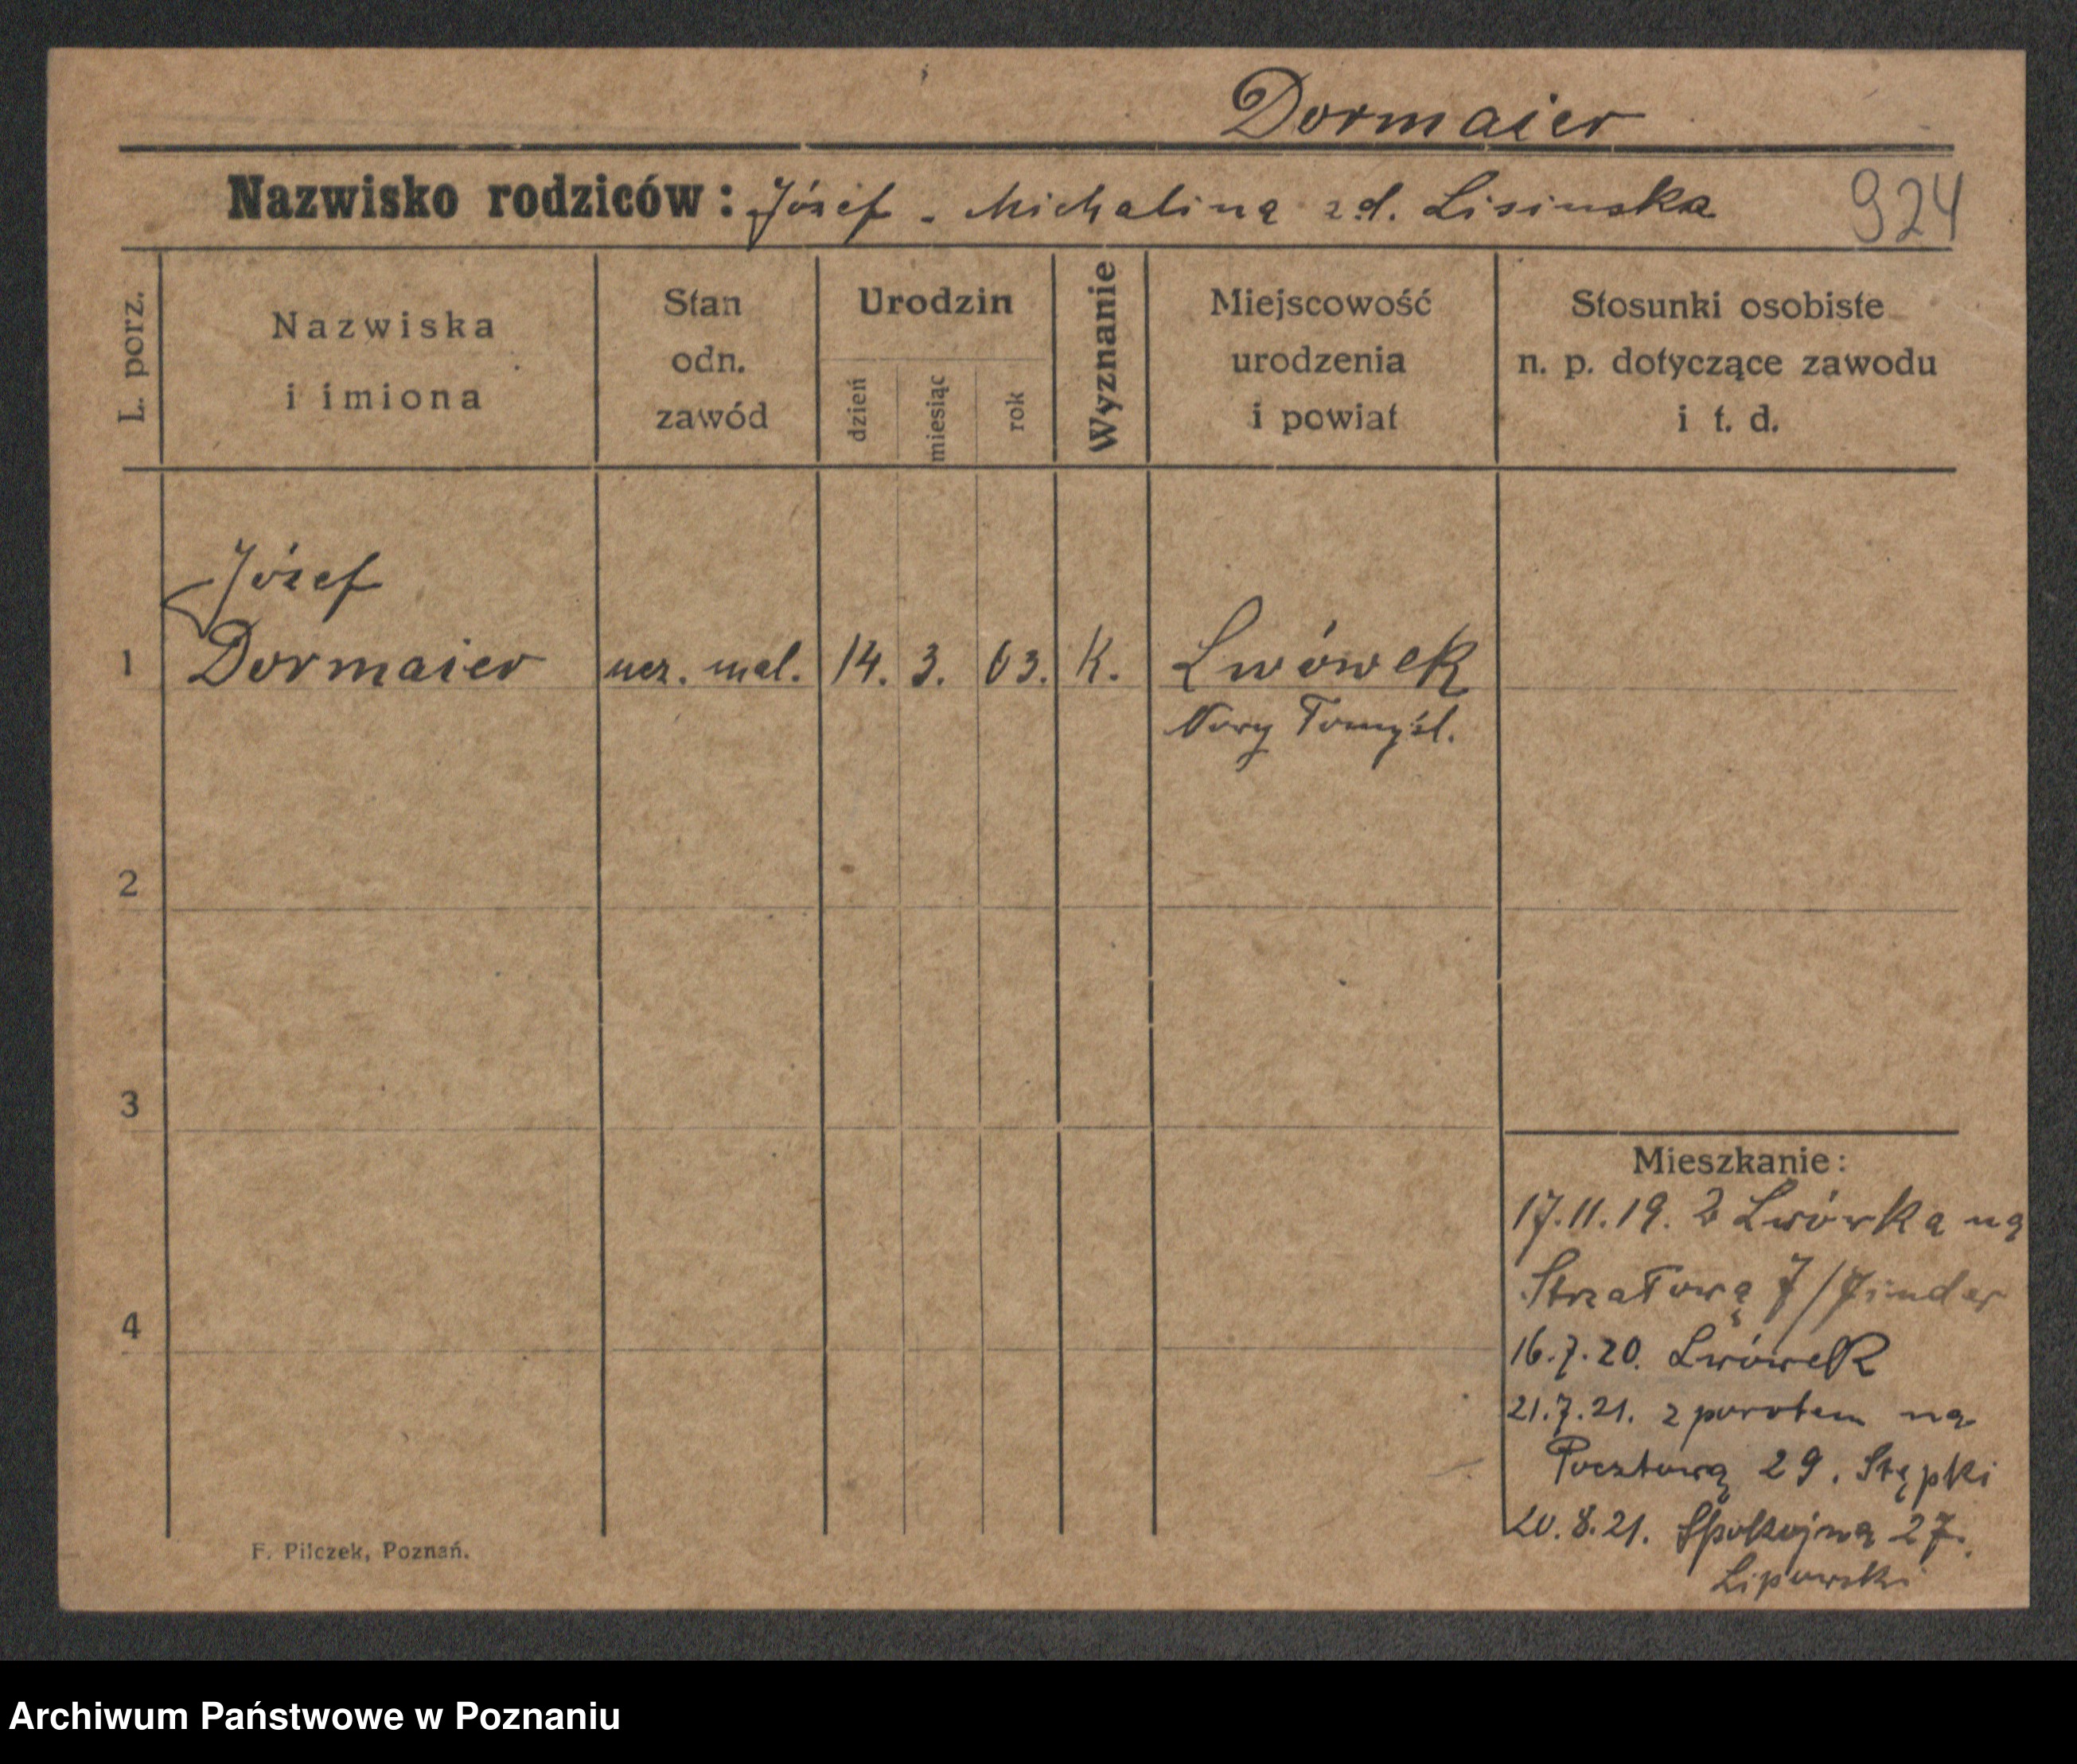 Dormaier
Nazwisko rodziców: Józef - Michalina zd. Lisinska 924
L. porz.
Nazwiska i imiona
Stan odn. zawód
Urodzin
dzień miesiąc rok
Wyznanie
Miejscowość urodzenia i powiat
Stosunki osobiste n. p. dotyczące zawodu i t. d.
Józef
1 Dormaier ucz. mal. 14. 3. 03. K. Lwówek
Nowy Tomyśl.
2
3
Mieszkanie:
17.11.19. z Lwówka na
Strzałową 7/
4
16.7.20. Lwówek
21.7.21. z powrotem na
Pocztową 29.
20.8.21. Spokojna 27.
Lipowski
F. Pilczek, Poznań.
Archiwum Państwowe w Poznaniu